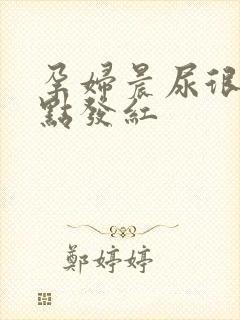 孕婦晨尿很
點發紅
鄭婷婷